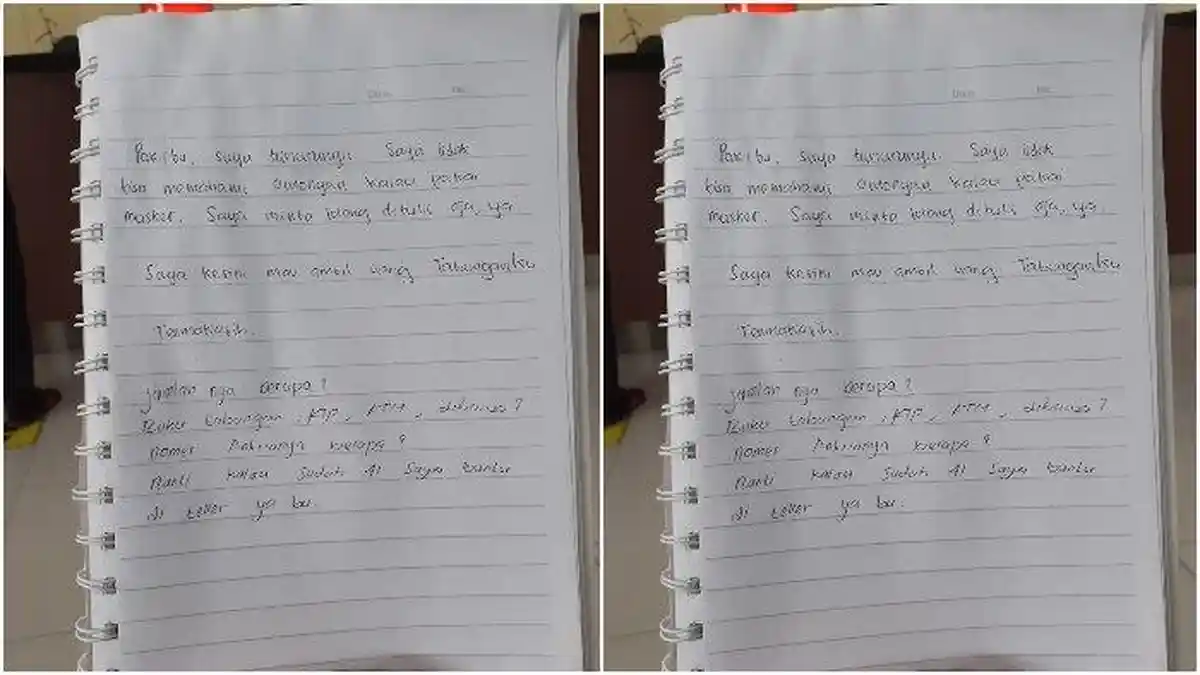 Date
No.
Pak ibu, saya tunarungu. Saya tidak
bisa memahami omongan kalau pakai
masker. Saya minta tolong ditulis aja, ya.
Saya kesini mau ambil uang Tabunganku
Terimakasih.
Jumlah nya berapa?
Buku tabungan, KTP, ATM, dibawa?
nomer Antriannya berapa?
Nanti kalau sudah di saya bantu
di teller ya bu.
Date
No.
Pak ibu, saya tunarungu. Saya tidak
bisa memahami omongan kalau pakai
masker. Saya minta tolong ditulis aja, ya.
Saya kesini mau ambil uang Tabunganku
Terimakasih.
Jumlah nya berapa?
Buku tabungan, KTP, ATM, dibawa?
nomer Antriannya berapa?
Nanti kalau sudah di saya bantu
di teller ya bu.